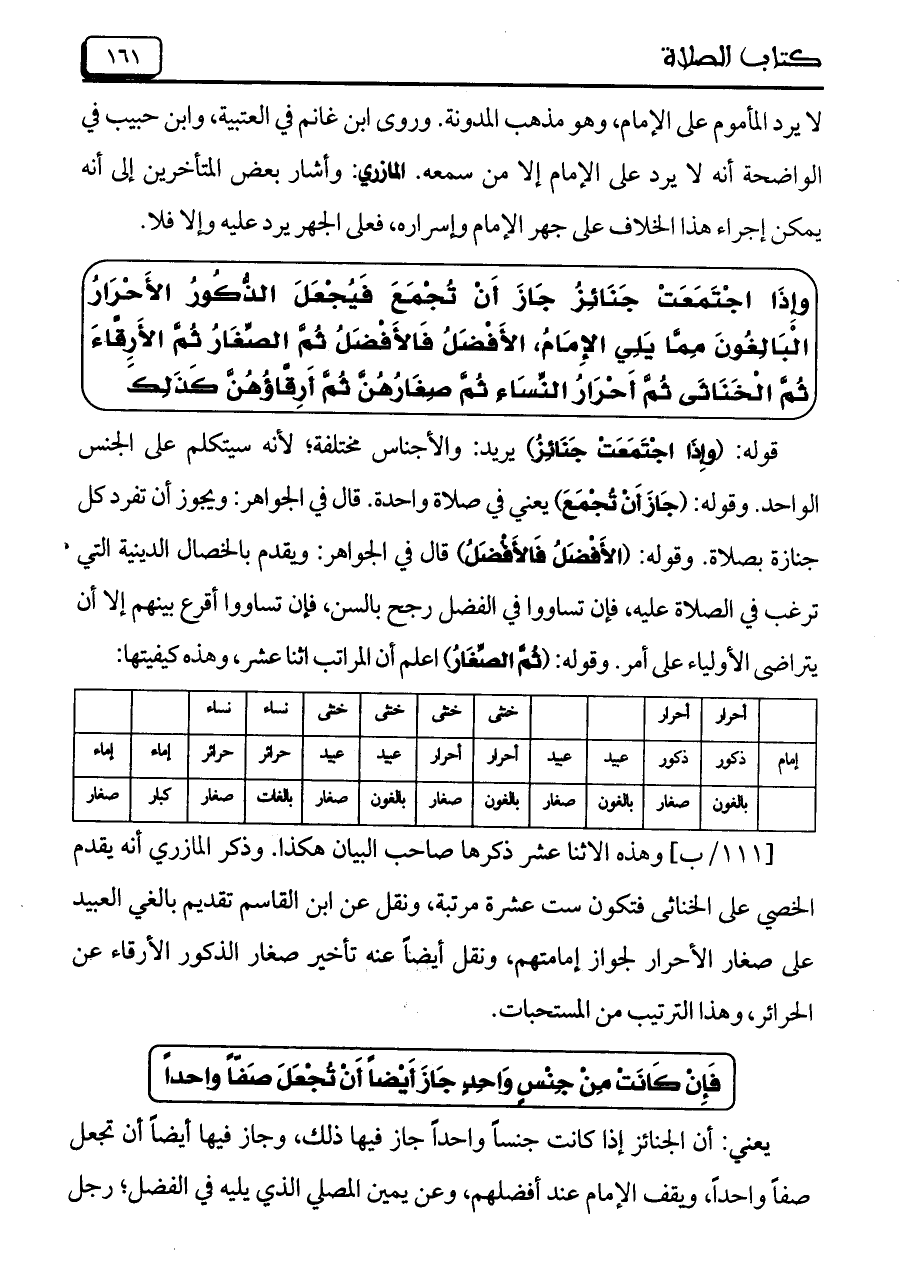 كتاب الصلاة ١٦١
لا يرد المأموم على الإمام، وهو مذهب المدونة. وروى ابن غانم في العتبية، وابن حبيب في
الواضحة أنه لا يرد على الإمام إلا من سمعه. المازري: وأشار بعض المتأخرين إلى أنه
يمكن إجراء هذا الخلاف على جهر الإمام وإسراره، فعلى الجهر يرد عليه وإلا فلا.
وإِذَا اجْتَمَعَتْ جَنَائِزُ جَازَ أَنْ تُجْمَعَ فَيُجْعَلَ الذُّكُورُ الأَحْرَارُ
الْبَالِغُونَ مِمَّا يَلِي الإِمَامَ، الأَفْضَلُ فَالأَفْضَلُ ثُمَّ الصِّغَارُ ثُمَّ الأَرِقَّاءَ
ثُمَّ الْخَنَاثَى ثُمَّ أَحْرَارُ النِّسَاءِ ثُمَّ صِغَارُهُنَّ ثُمَّ أَرِقَّاؤُهُنَّ كَذَلِكَ
قوله: (وإِذَا اجْتَمَعَتْ جَنَائِزُ) يريد: والأجناس مختلفة؛ لأنه سيتكلم على الجنس
الواحد. وقوله: (جَازَ أَنْ تُجْمَعَ) يعني في صلاة واحدة. قال في الجواهر: ويجوز أن تفرد كل
جنازة بصلاة. وقوله: (الأَفْضَلُ فَالأَفْضَلُ) قال في الجواهر: ويقدم بالخصال الدينية التي
ترغب في الصلاة عليه، فإن تساووا في الفضل رجح بالسن، فإن تساووا أقرع بينهم إلا أن
يتراضى الأولياء على أمر. وقوله: (ثُمَّ الصِّغَارُ) اعلم أن المراتب اثنا عشر، وهذه كيفيتها:
أحرار أحرار خنثى خنثى خنثى خنثى نساء نساء
إمام ذكور ذكور عبيد عبيد أحرار أحرار عبيد عبيد حرائر حرائر إماء إماء
بالغون صغار بالغون صغار بالغون صغار بالغون صغار بالغات صغار كبار صغار
[١١١/ ب] وهذه الاثنا عشر ذكرها صاحب البيان هكذا. وذكر المازري أنه يقدم
الخصي على الخناثى فتكون ست عشرة مرتبة، ونقل عن ابن القاسم تقديم بالغي العبيد
على صغار الأحرار لجواز إمامتهم، ونقل أيضاً عنه تأخير صغار الذكور الأرقاء عن
الحرائر، وهذا الترتيب من المستحبات.
فَإِنْ كَانَتْ مِنْ جِنْسٍ وَاحِدٍ جَازَ أَيْضاً أَنْ تُجْعَلَ صَفّاً واحداً
يعني: أن الجنائز إذا كانت جنساً واحداً جاز فيها ذلك، وجاز فيها أيضاً أن تجعل
صفاً واحداً، ويقف الإمام عند أفضلهم، وعن يمين المصلي الذي يليه في الفضل؛ رجل